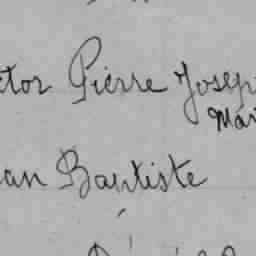 ctor Pierre Joseph
Mar
ean Baptiste